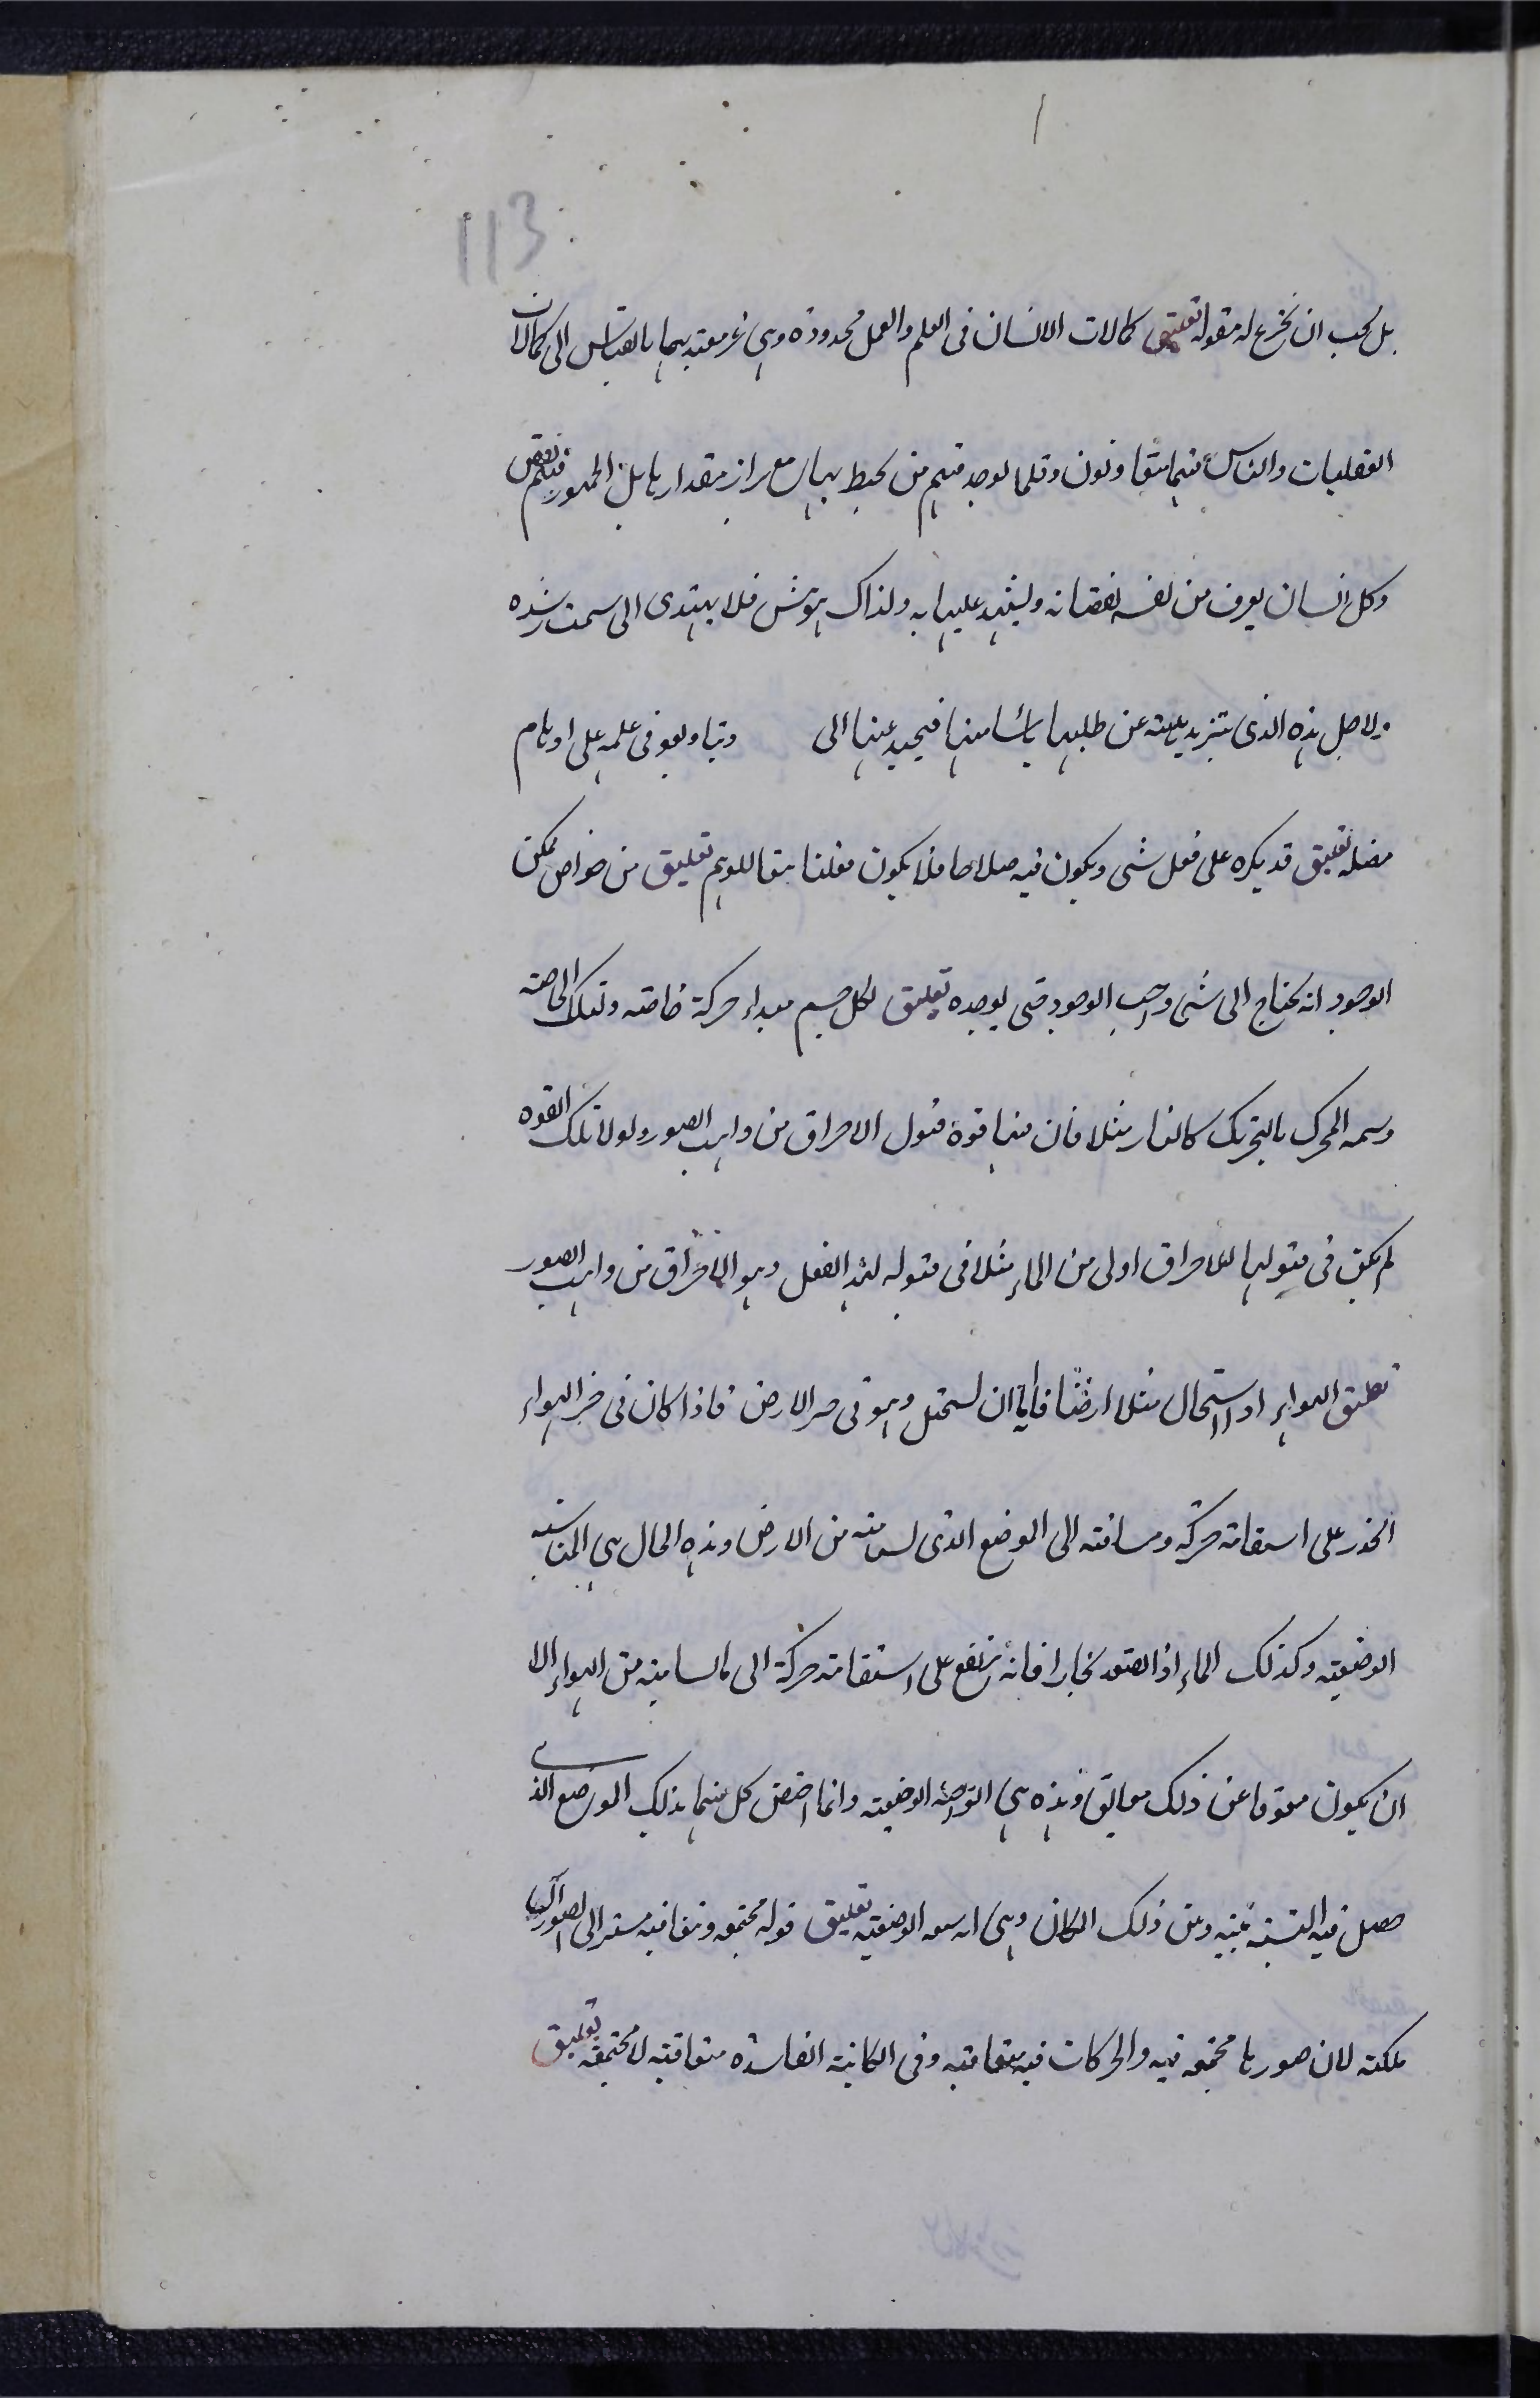 113
بل يجب ان يخرج له مقولة تعليق كمالات الانسان فى العلم والعمل محدودة وهى غير معتد بهما بالقياس الى كمالات
العقليات والناس فيهما متفاوتون وقلما يوجد فيهم من يحيط بها مع مقدارها بل الجمهور فيهم نقص
وكل انسان يعرف من نفسه نقصانه ويشهد عليها به ولذاك يتوش فلا يهتدى الى سمت رشده
ولاجل هذه الذى عن طلبها يائسا منها فيحيد عنها الى وتباو يعو فى علمه على اوهام
مضلة تعليق قد يكره على فعل شى ويكون فيه صلاحا فلا يكون للوهم تعليق من خواص ممكن
الوجود انه يحتاج الى شى واجب الوجود حتى يوجده تعليق لكل جسم مبداء حركة خاصته وتلك الخاصته
وسمه المحرك بالتحريك كالنار مثلا فان فيها قوة قبول الاحراق من واهب الصور ولولا تلك القوه
لم يكن فى قبولها للاحراق اولى من الماء مثلا فى قبوله لهذا الفعل وهو الاحراق من واهب الصور
تعليق الهواء اذا استحال مثلا ارضا فاما ان يستحيل وهو فى حيز الارض فاذا كان فى حيز الهواء
انحدر على استقامة حركته ومسافته الى الموضع الذى يسامته من الارض وهذه الحال هى المناسبه
الوضعيته وكذلك الماء اذا تصعد بخارا فانه يرتفع على استقامته حركة الى ما يسامته من الهواء الا
ان يكون معوقا عن ذلك بعايق وهذه هى الوضعيته وانما اختص كل منهما بذلك الموضع الذى
حصل فيه للنسبته بينه وبين ذلك المكان وهى الوضعيته تعليق قوله مجتمعه ومتعاقبه مشير الى الصور
ملكته لان صورها مجتمعه فيه والحركات فيه متعاقبه وفى الكائنة الفاسده متعاقبته لا مجتمعه تعليق